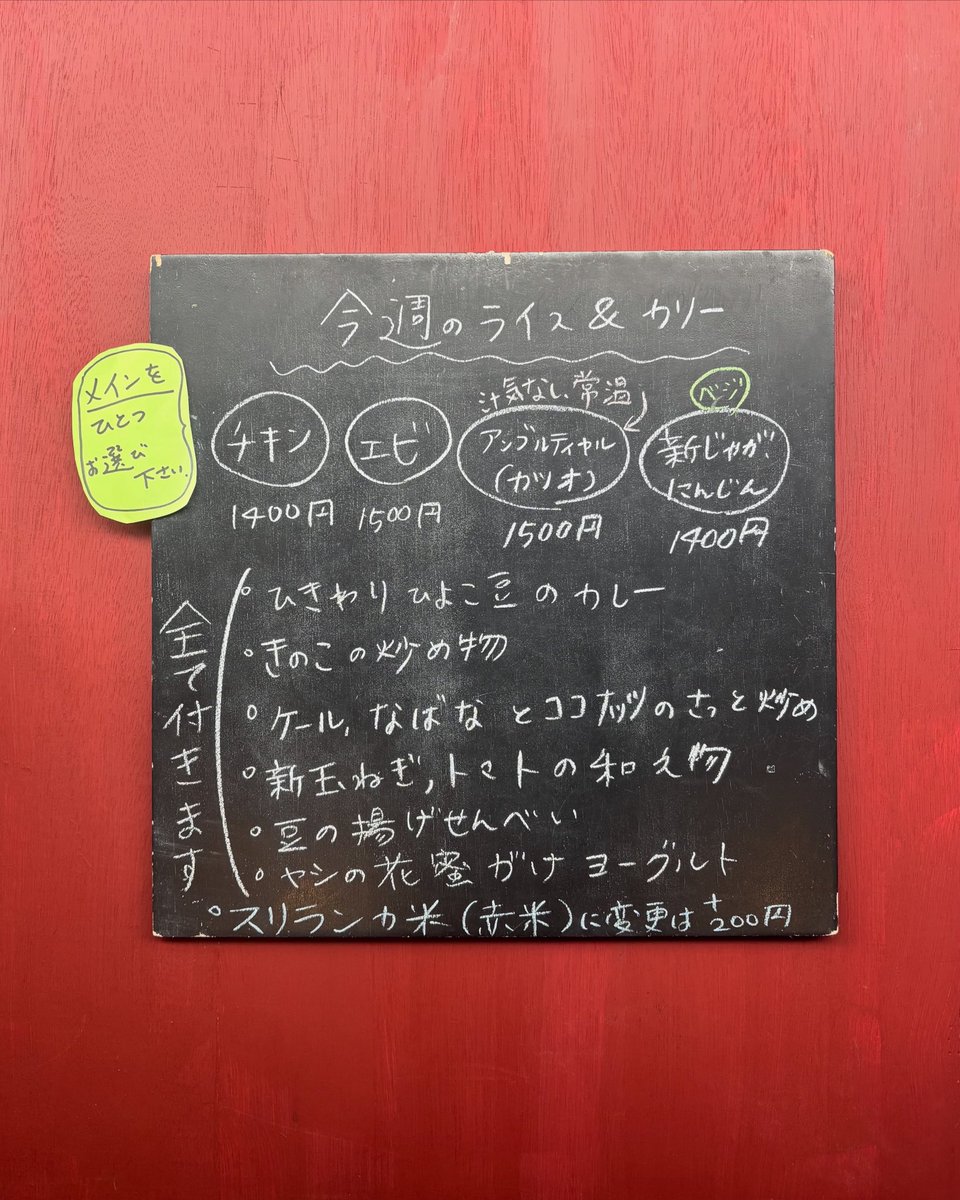 今週のライス&カリー
メインを
ひとつ
お選び
下さい。
チキン
1400円
エビ
1500円
汁気ない常温
アンブルティヤル
(カツオ)
1500円
ベジ
新じゃが
にんじん
1400円
全て付きます
ひきわりひよこ豆のカレー
きのこの炒め物
ケール,なばなとココナッツのさっと炒め
新玉ねぎ,トマトの和え物
豆の揚げせんべい
ヤシの花蜜がけヨーグルト
スリランカ米(赤米)に変更は+200円